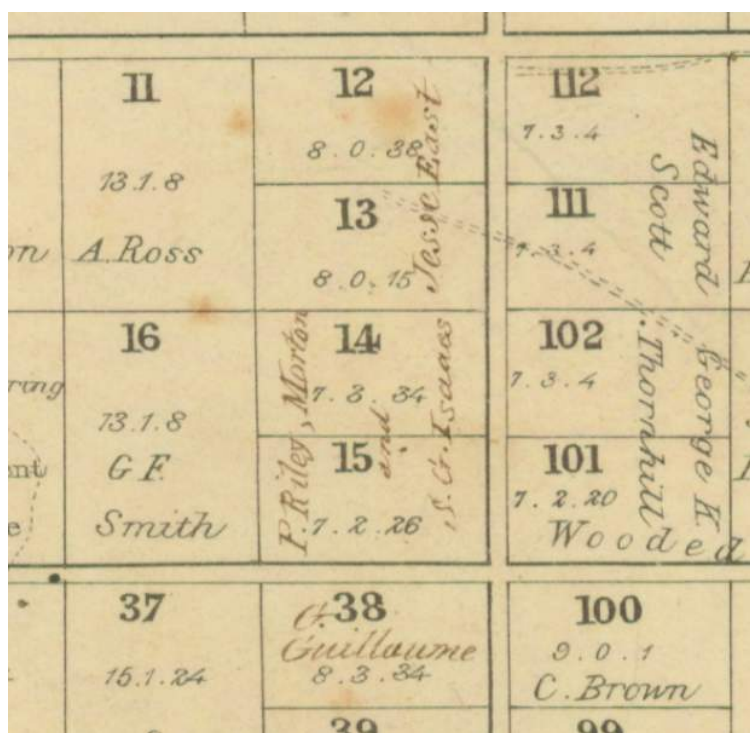 11
13.1.8
A. Ross
12
8.0.38
13
8.0.15
Jesse East
112
7.3.4
111
7.3.4
Edward
Scott
16
13.1.8
G F.
Smith
14
7.3.34
15
7.2.26
P. Riley, Morton
and
S. G. Isaacs
102
7.3.4
101
7.2.20
George K.
Thornhill
Wooded
37
15.1.24
38
G.
Guillaume
8.3.34
39
100
9.0.1
C. Brown
99